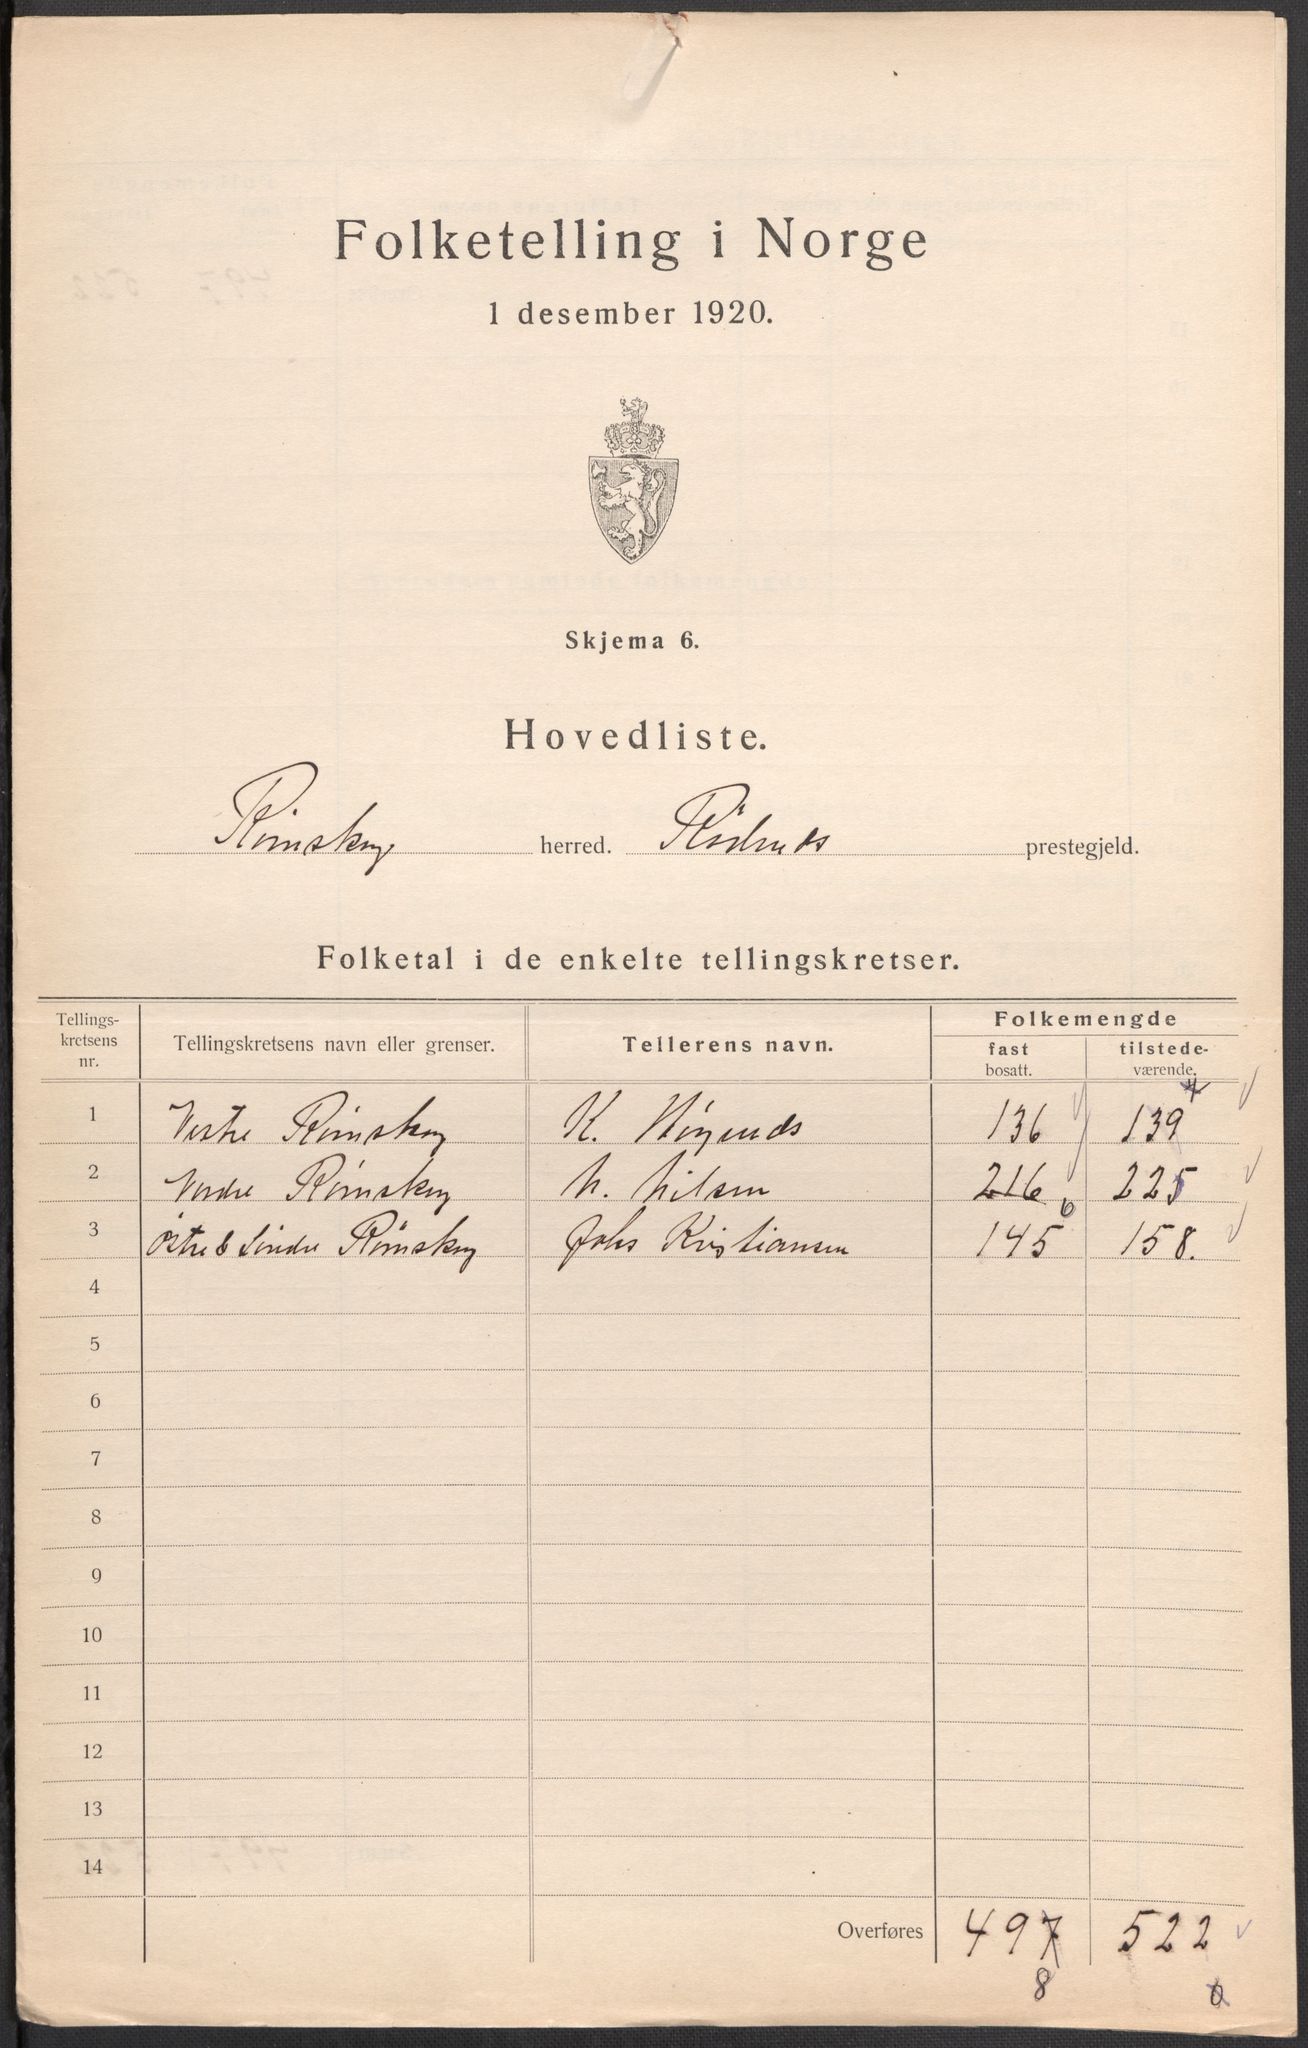 Folketelling i Norge
1 desember 1920.
Skjema 6.
Hovedliste.
Rømskog herred. Rödenes prestegjeld.
Folketal i de enkelte tellingskretser.
Tellings-
kretsens
nr.
Tellingskretsens navn eller grenser.
Tellerens navn.
Folkemengde
fast
bosatt.
tilstede-
værende.
1 Vestre Rømskog K. 136 139
2 Nordre Rømskog N. Nilsen 216 225
6
3 Östre & Søndre Rømskog Johs Kristiansen 145 158.
4
5
6
7
8
9
10
11
12
13
14
Overføres 497 522
8